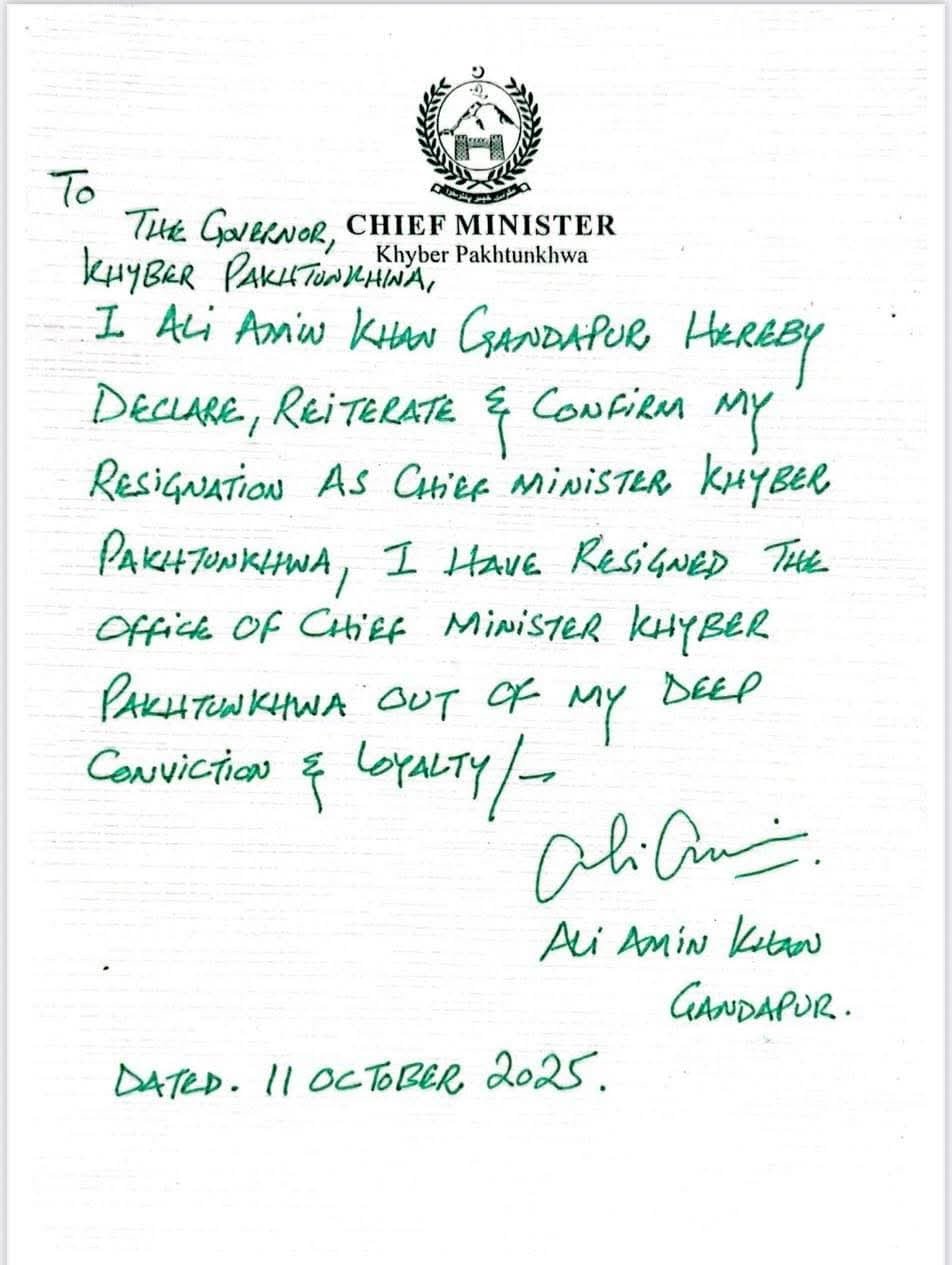 To
CHIEF MINISTER
THE GOVERNOR,
Khyber Pakhtunkhwa
KHYBER PAKHTUNKHWA,
I ALI AMIN KHAN GANDAPUR HEREBY
DECLARE, REITERATE & CONFIRM MY
RESIGNATION AS CHIEF MINISTER KHYBER
PAKHTUNKHWA, I HAVE RESIGNED THE
OFFICE OF CHIEF MINISTER KHYBER
PAKHTUNKHWA OUT OF MY DEEP
CONVICTION & LOYALTY/-
Ali Amin.
ALI AMIN KHAN
GANDAPUR.
DATED. 11 OCTOBER 2025.